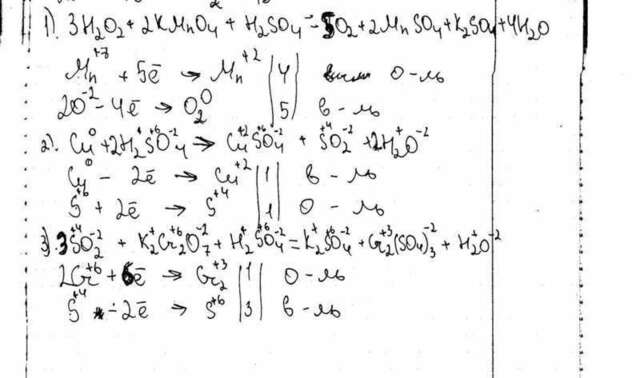 1). 3H₂O₂ + 2KMnO₄ + H₂SO₄ – 5O₂ + 2MnSO₄ + K₂SO₄ + 4H₂O
Mn⁺⁷ + 5ē → Mn⁺² | 4 | о-ль
2O⁻² – 4ē → O₂⁰ | 5 | в-ль
2). Cu⁰ + 2H₂⁺S⁺⁶O₄⁻² → Cu⁺²S⁺⁶O₄⁻² + S⁺⁴O₂⁻² + 2H₂⁺O⁻²
Cu⁰ – 2ē → Cu⁺² | 1 | в-ль
S⁺⁶ + 2ē → S⁺⁴ | 1 | о-ль
3). 3S⁺⁴O₂⁻² + K₂⁺Cr₂⁺⁶O₇⁻² + H₂⁺S⁺⁶O₄⁻² = K₂⁺S⁺⁶O₄⁻² + Cr₂⁺³(SO₄)₃⁻² + H₂⁺O⁻²
2Cr⁺⁶ + 6ē → Cr₂⁺³ | 1 | о-ль
S⁺⁴ – 2ē → S⁺⁶ | 3 | в-ль